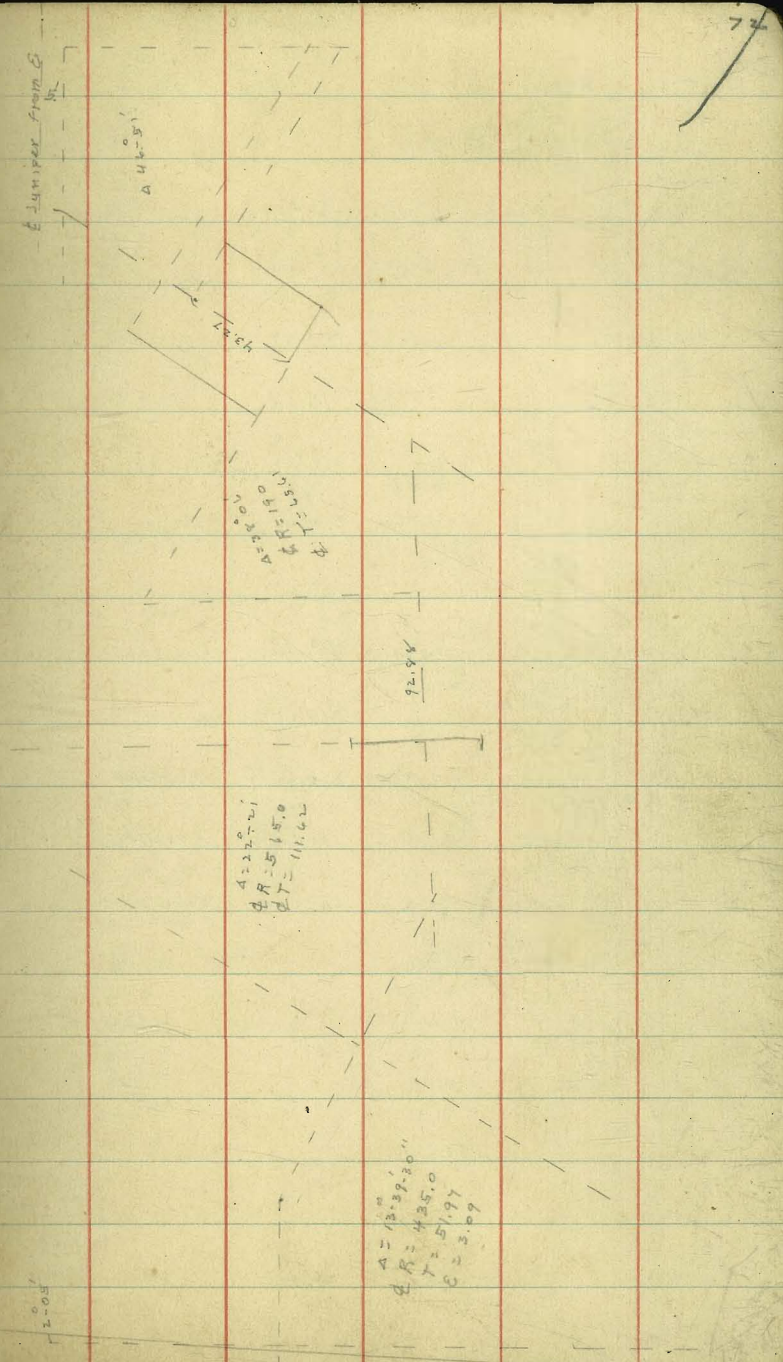 72
℄ Juniper From ℄
43.27
Δ=38°06'
℄ R=190
℄ T=65.61
92.88
Δ=22°-21'
℄ R=515.0
℄ T=111.62
Δ=13°-39'-30"
℄ R=435.0
T=51.97
E=3.09
2°-05'